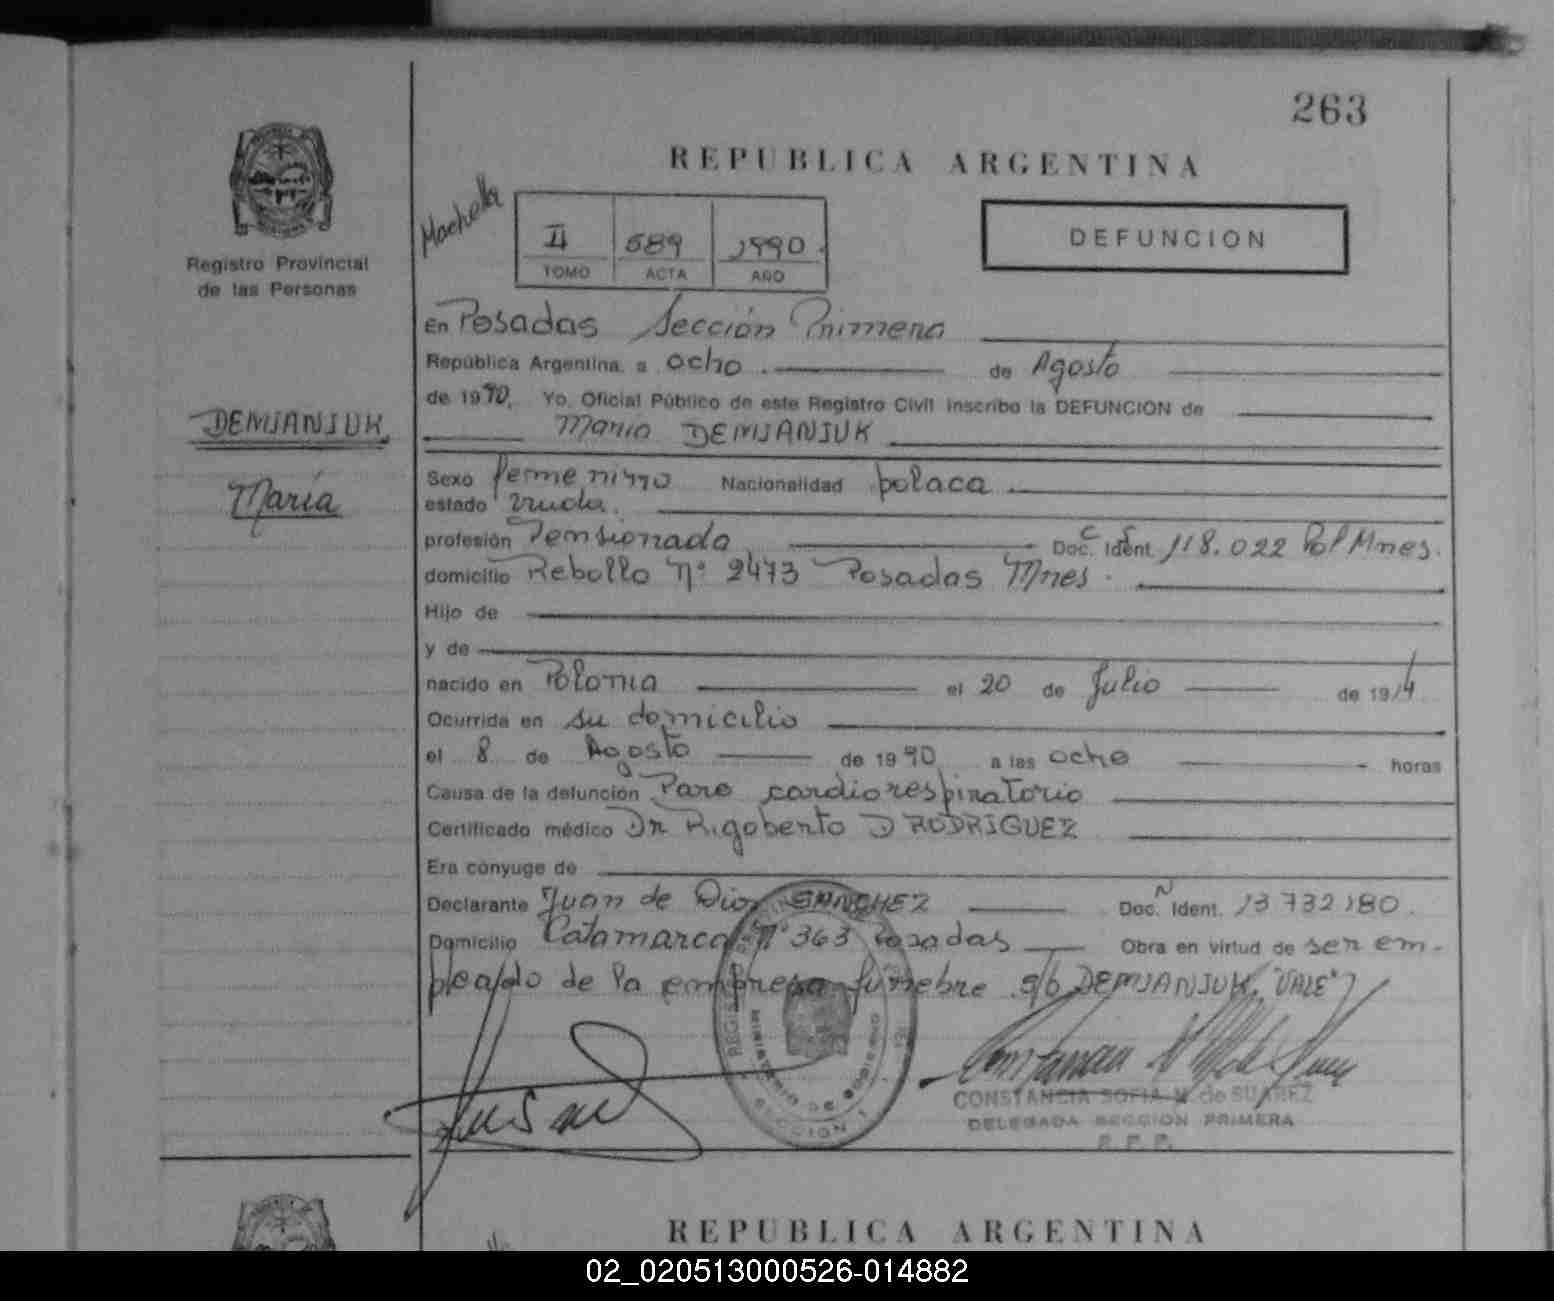 263
REPUBLICA ARGENTINA
Registro Provincial
de las Personas
II 589 1990
TOMO ACTA AÑO
DEFUNCION
En Posadas Sección Primera
República Argentina, a ocho de Agosto
de 1990, Yo, Oficial Público de este Registro Civil inscribo la DEFUNCION de
María DEMJANJUK
DEMJANJUK
María
Sexo femenino Nacionalidad polaca
estado viuda.
profesión Pensionada Doc. Ident. C. 118.022 Pol Mnes.
domicilio Rebollo Nº 2473 Posadas Mnes.
Hijo de
y de
nacido en Polonia el 20 de Julio de 1914
Ocurrida en su domicilio
el 8 de Agosto de 1990 a las ocho horas
Causa de la defunción Paro cardiorespiratorio
Certificado médico Dr Rigoberto D RODRIGUEZ
Era cónyuge de
Declarante Juan de Dios SANCHEZ Doc. N Ident. 13 732 180.
Domicilio Catamarca Nº 363 Posadas Obra en virtud de ser em-
pleado de la empresa fúnebre s/b DEMJANJUK "VALE"
MINISTERIO DE GOBIERNO
SECCION 1
CONSTANCIA SOFIA M. de SUAREZ
DELEGADA SECCION PRIMERA
R. P. P.
REPUBLICA ARGENTINA
02_020513000526-014882